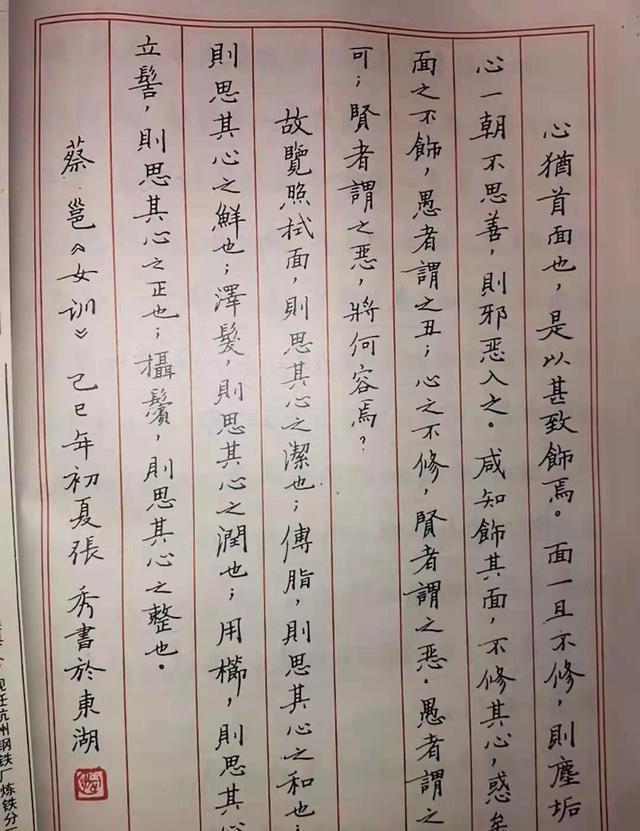 心猶首面也，是以甚致飾焉。面一旦不修，則塵垢
心一朝不思善，則邪惡入之。咸知飾其面，不修其心，惑矣
面之不飾，愚者謂之丑；心之不修，賢者謂之恶。愚者謂之
可；賢者謂之恶，將何容焉？
故覽照拭面，則思其心之潔也；傅脂，則思其心之和也；
則思其心之鮮也；澤髮，則思其心之潤也；用櫛，則思其心
立髻，則思其心之正也；攝鬢，則思其心之整也。
蔡邕《女训》己巳年初夏張秀書於東湖
现任杭州钢铁厂炼铁分